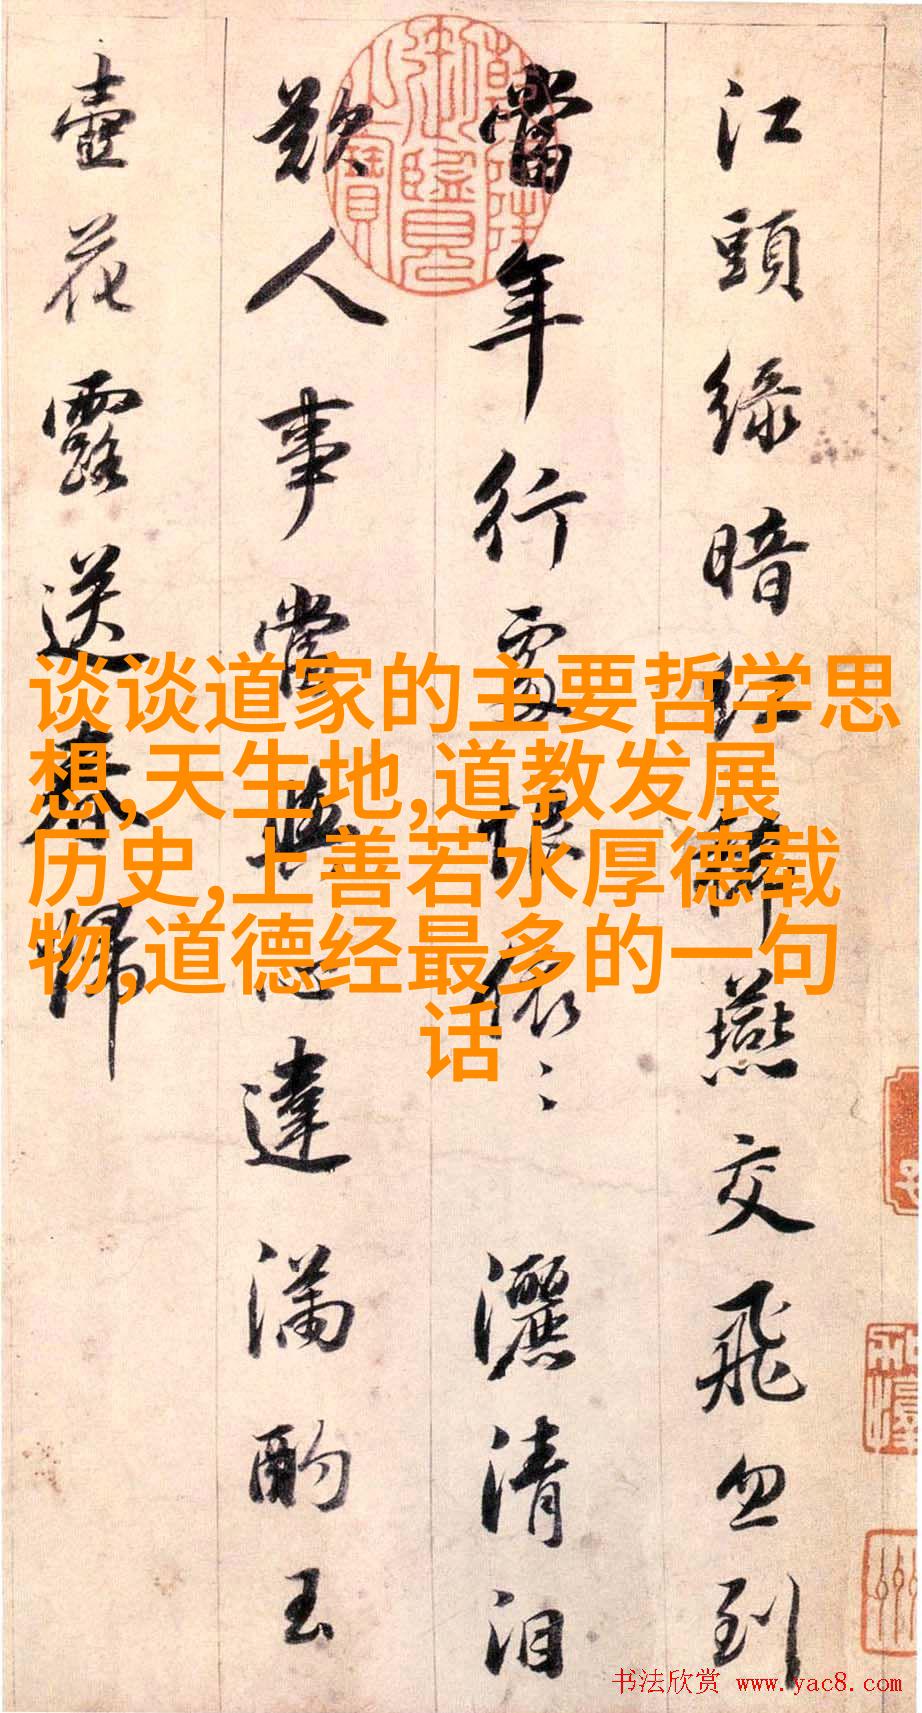 江頭綠暗紅稀燕交飛忽到
當年行處恨依〻灑清泪
歎人事常與心違滿酌玉
壺花露送春歸
乾隆御覽之寶
谈谈道家的主要哲学思
想,天生地,道教发展
历史,上善若水厚德载
物,道德经最多的一句
话
书法欣赏 www.yac8.com